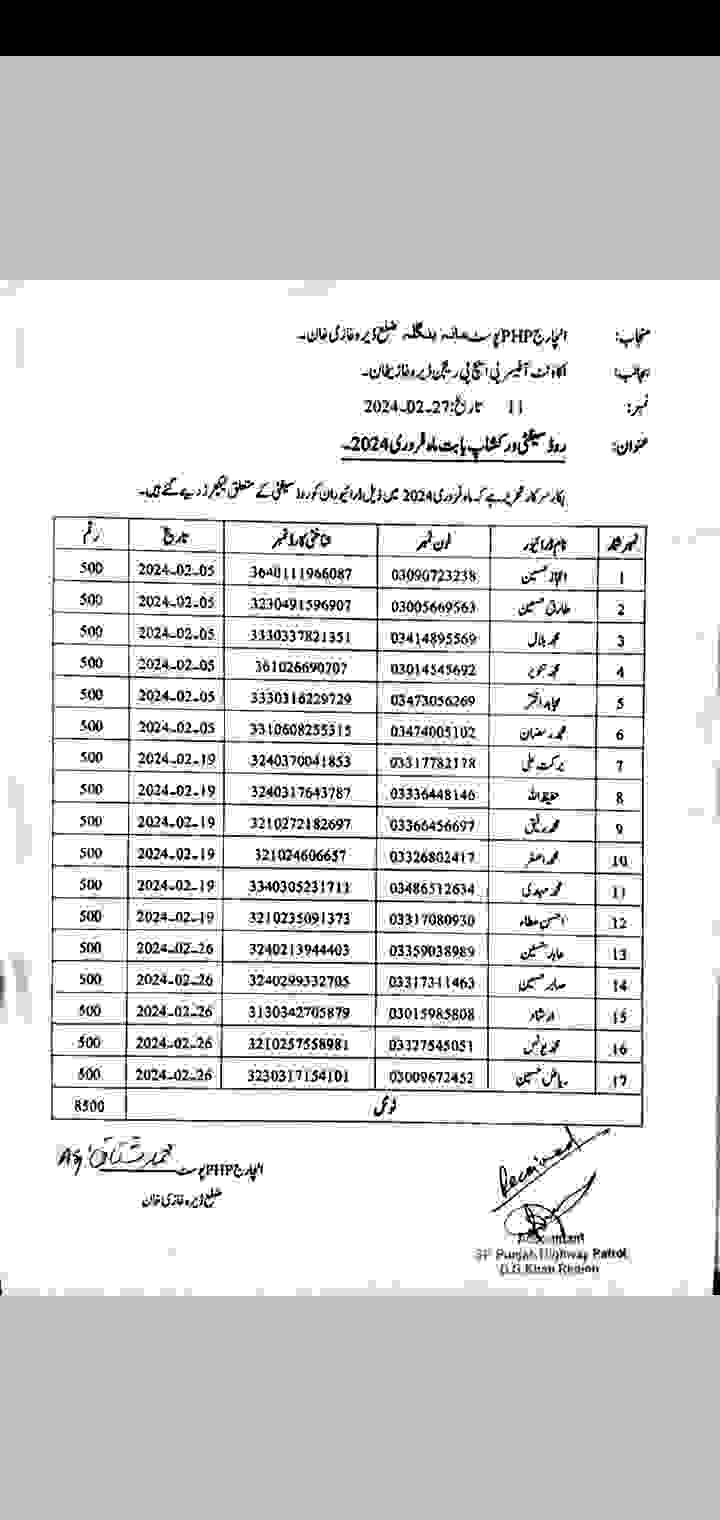 منجانب: انچارج PHP پوسٹ بنگلہ ضلع ڈیرہ غازی خان۔
بجانب: اکاونٹ آفیسر پی ایچ پی ریجن ڈیرہ غازیخان۔
نمبر: 11 تاریخ: 27-02-2024
عنوان: روڈ سیفٹی ورکشاپ بابت ماہ فروری 2024۔
بکار سرکار تحریر ہے کہ ماہ فروری 2024 میں ذیل ڈرائیوران کو روڈ سیفٹی کے متعلق لیکچرز دیے گئے ہیں۔
نمبر شمار نام ڈرائیور فون نمبر شناختی کارڈ نمبر تاریخ رقم
1 اعجاز حسین 03090723238 3640111966087 2024-02-05 500
2 طارق حسین 03005669563 3230491596907 2024-02-05 500
3 محمد بلال 03414895569 3330337821351 2024-02-05 500
4 محمد تنویر 03014545692 361026690707 2024-02-05 500
5 مجاہد اختر 03473056269 3330316229729 2024-02-05 500
6 محمد رمضان 03474005102 3310608255315 2024-02-05 500
7 برکت علی 03317782178 3240370041853 2024-02-19 500
8 حفیظ اللہ 03336448146 3240317643787 2024-02-19 500
9 محمد رفیق 03366456697 3210272182697 2024-02-19 500
10 محمد اصغر 03326802417 321024606657 2024-02-19 500
11 محمد مہدی 03486512634 3340305231711 2024-02-19 500
12 احسن عطاء 03317080930 3210235091373 2024-02-19 500
13 عابد حسین 03359038989 3240213944403 2024-02-26 500
14 صابر حسین 03317311463 3240299332705 2024-02-26 500
15 ارشاد 03015985808 3130342705879 2024-02-26 500
16 محمد یونس 03327545051 3210257558981 2024-02-26 500
17 ریاض حسین 03009672452 3230317154101 2024-02-26 500
ٹوٹل 8500
انچارج PHP پوسٹ
ضلع ڈیرہ غازی خان
Received
Accountant
SP Punjab Highway Patrol
D.G Khan Region